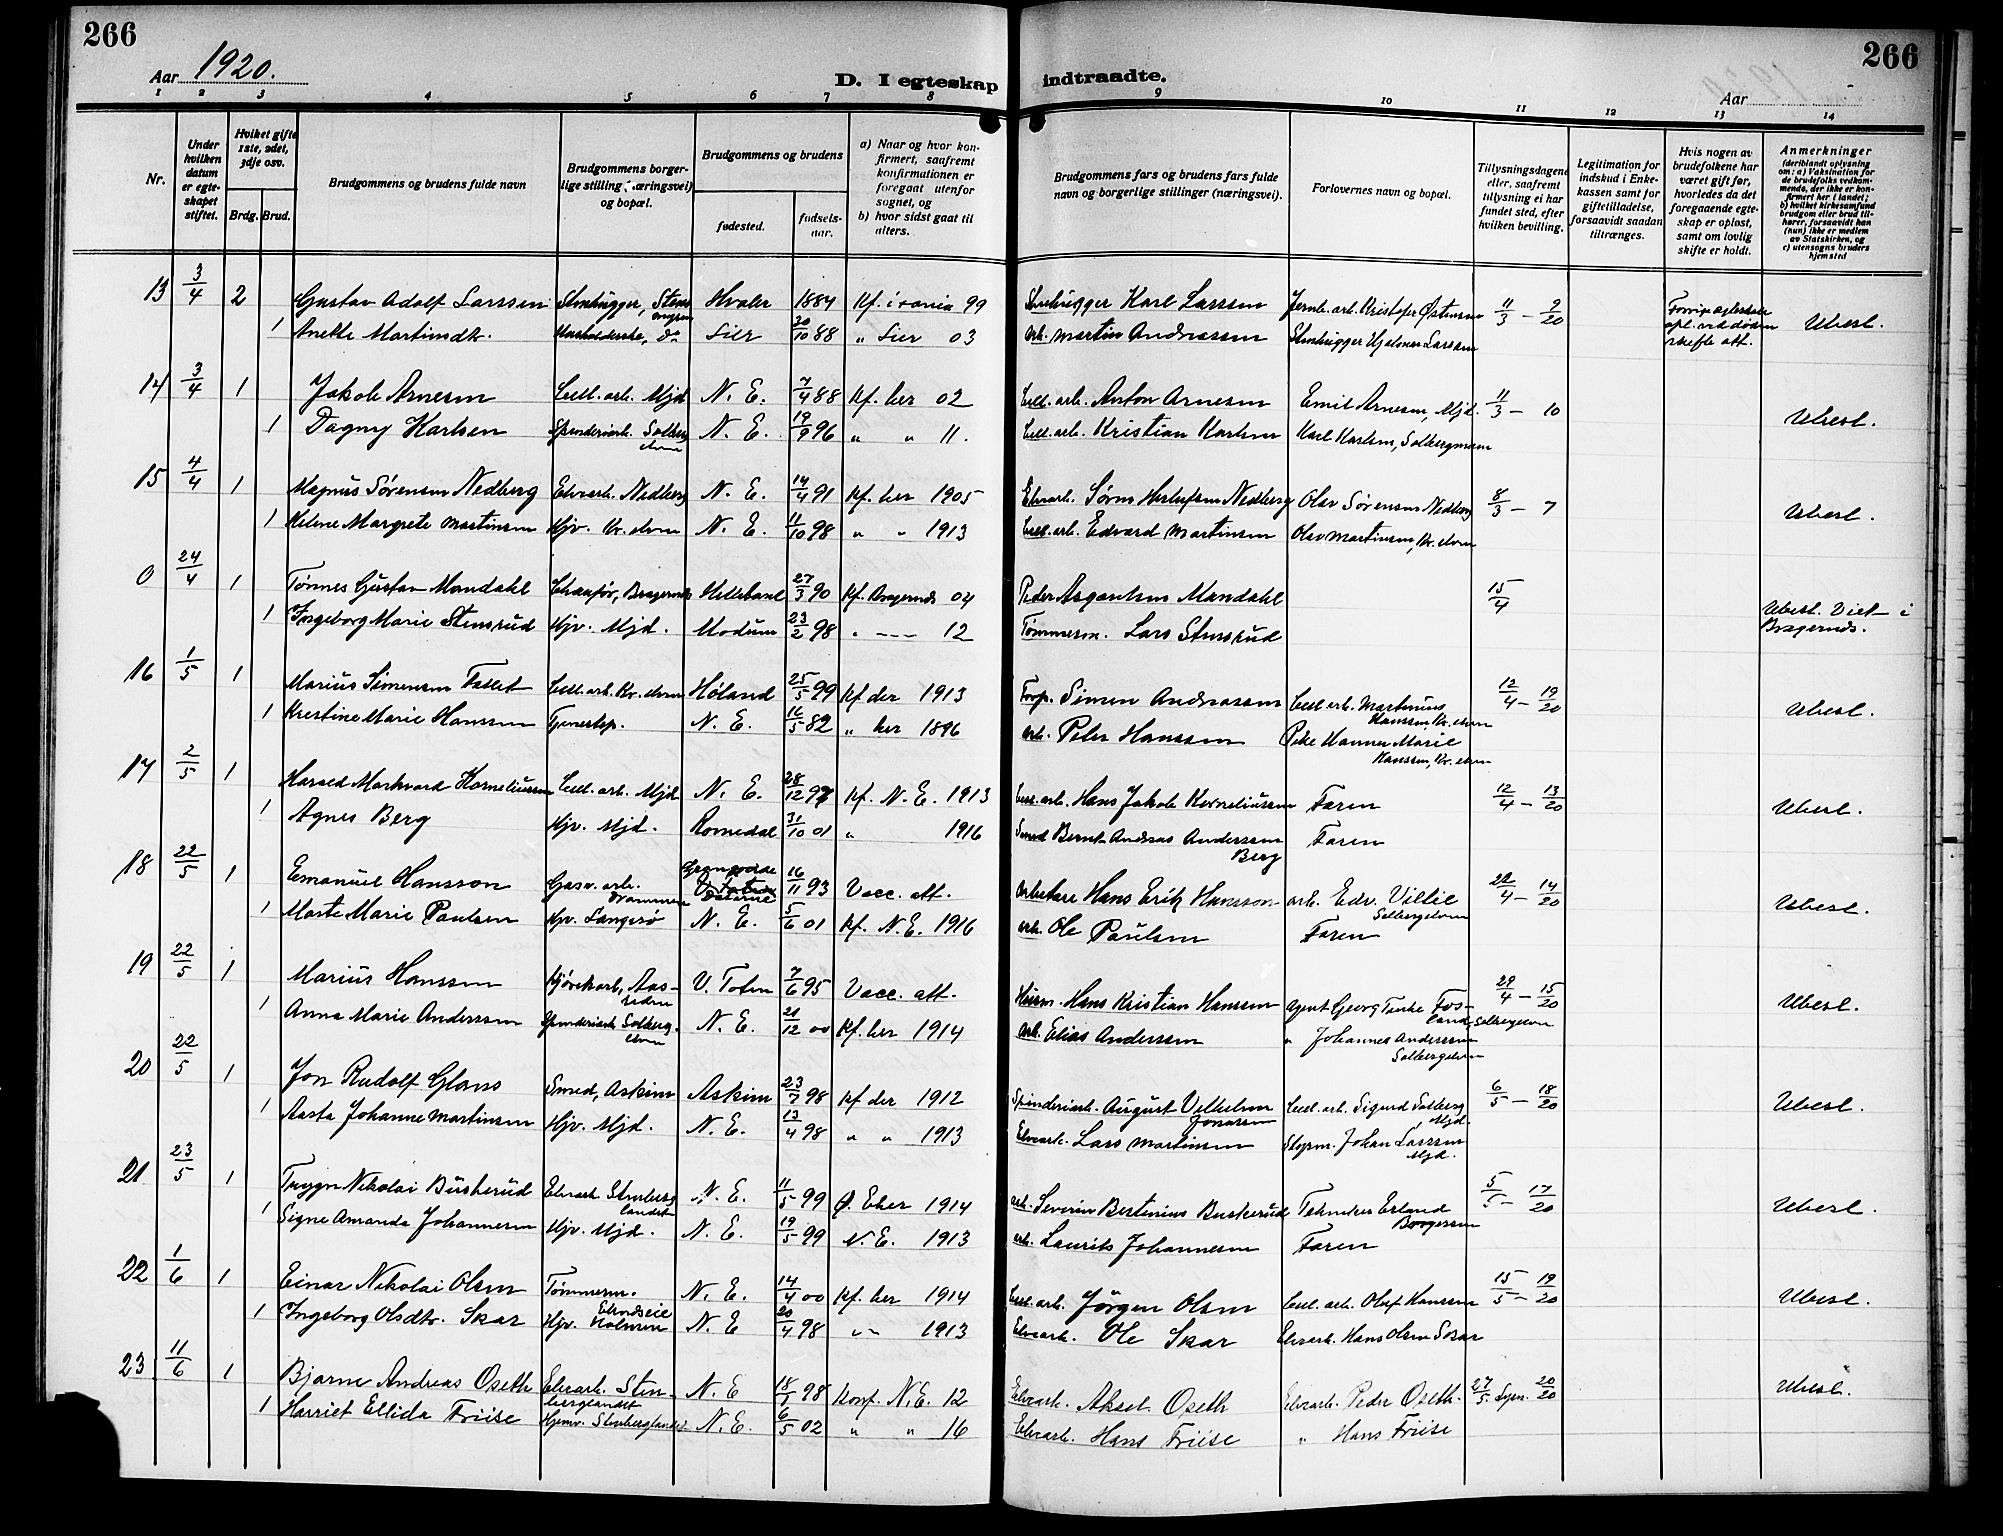 266
266
Aar 1920.
D. I egteskap indtraadte.
Aar
1 2 3 4 5 6 7 8 9 10 11 12 13 14
Nr.
Under hvilken datum er egteskapet stiftet.
Hvilket gifte 1ste, 2det, 3dje osv.
Brdg. Brud.
Brudgommens og brudens fulde navn
Brudgommens borgerlige stilling (næringsvei) og bopæl.
Brudgommens og brudens
fødested.
fødselsaar.
a) Naar og hvor konfirmert, saafremt konfirmationen er foregaat utenfor sognet, og
b) hvor sidst gaat til alters.
Brudgommens fars og brudens fars fulde navn og borgerlige stillinger (næringsvei).
Forlovernes navn og bopæl.
Tillysningsdagene eller, saafremt tillysning ei har fundet sted, efter hvilken bevilling.
Legitimation for indskud i Enkekassen samt for giftetilladelse, forsaavidt saadan tiltrænges.
Hvis nogen av brudefolkene har været gift før, hvorledes da det foregaaende egteskap er opløst, samt om lovlig skifte er holdt.
Anmerkninger (deriblandt oplysning om: a) Vaksination for de brudefolks vedkommende, der ikke er konfirmert her i landet; b) hvilket kirkesamfund brudgom eller brud tilhører, forsaavidt han (hun) ikke er medlem av Statskirken, og c) utensogns bruders hjemsted
13 3/4 2 Gustav Adolf Larssen Stenhugger, Hvaler 1884 Kf. 99 Stenhugger Karl Larssen Jernb. arb. Kristofer Østensen 11/3 – 9/20 Ubesl.
1 Anette Martinsdtr. do Lier 30/10 88 " Lier 03 Arb. Martin Andreassen Stenhugger Hjalmar Larssen
14 3/4 1 Jakob Arnesen Cell. arb. Mjd N. E. 7/4 88 Kf. her 02 Cell. arb. Anton Arnesen Emil Arnesen, Mjd. 11/3 – 10 Ubesl.
1 Dagny Karlsen Spinderiarb. Solbergelven N. E. 19/9 96 " " 11. Cell. arb. Kristian Karlsen Karl Karlsen, Solbergmoen
15 4/4 1 Magnus Sørensen Nedberg Elvearb. Nedberg N. E. 14/4 91 Kf. her 1905 Elvearb. Søren Nedberg Olav Sørensen Nedberg 8/3 – 7 Ubesl.
1 Helene Margrete Martinsen Hjv. Kr. elven N. E. 11/10 98 " " 1913 Cell. arb. Edvard Martinsen Olav Martinsen, Kr. elven
0 24/4 1 Tønnes Gustav Mandahl Chaufør, Bragernes 27/3 90 Kf. Bragernes 04 Peder Mandahl 15/4 Ubesl. Viet i Bragernes.
1 Ingeborg Marie Stensrud Hjv. Mjd. Modum 23/2 98 " --- 12 Tømmerm. Lars Stensrud
16 1/5 1 Marius Simensen Cell. arb. Kr. elven Høland 25/5 99 Kf der 1913 Forp. Simen Andreassen Cell. arb. Martinius Hanssen, Kr. elven 12/4 – 19/20 Ubesl.
1 Kristine Marie Hanssen Tjenestep. N. E. 16/5 82 " her 1896 Arb. Peter Hanssen Pike Hanna Marie Hanssen, Kr. elven
17 2/5 1 Harald Markvard Korneliussen Cell. arb. Mjd N. E. 28/12 97 Kf. N. E. 1913 Cell. arb. Hans Jakob Korneliussen Faren 12/4 – 13/20 Ubesl.
1 Agnes Berg Hjv. Mjd. Romedal 31/10 01 " 1916 Smed Bernt Andreas Anderssen Berg Faren
18 22/5 1 Emanuel Hansson Gasv. arb. Drammen 16/11 93 Vacc. att. Arbetare Hans Erik Hansson arb. Edv. Villie Solbergelven 22/4 – 14/20 Ubesl.
1 Marte Marie Paulsen Hjv. Langesø N. E. 5/6 01 Kf. N. E. 1916 Arb. Ole Paulsen Faren
19 22/5 1 Marius Hanssen V. Toten 7/6 95 Vacc. att. Husm. Hans Kristian Hanssen agent Georg Solbergelven 29/4 – 15/20 Ubesl.
1 Anna Marie Anderssen Spinderiarb. Solbergelven N. E. 21/12 00 Kf. her 1914 Arb. Elias Anderssen " Johannes Anderssen Solbergelven
20 22/5 1 Jon Rudolf Glans Smed, Askim Askim 23/7 98 Kf der 1912 Spinderiarb. August Vilhelm Jonassen Cell. arb. Sigurd Solberg Mjd. 6/5 – 18/20 Ubesl.
1 Aasta Johanne Martinsen Hjv. Mjd. N. E. 13/4 98 " " 1913 Elvearb. Lars Martinsen Styrm. Johan Larssen Mjd.
21 23/5 1 Trygve Nikolai Buskerud Elvearb. Stenberglandet N. E. 11/5 99 Ø. Eker 1914 Arb. Severin Bertinius Buskerud Tekniker Erland Borgersen 5/5 – 17/20 Ubesl.
1 Signe Amanda Johannesen Hjv. Mjd. N. E. 19/5 99 N. E. 1913 Arb. Laurits Johannesen Faren
22 1/6 1 Einar Nikolai Olsen Tømmerm. N. E. 14/4 00 Kf. her 1914 Cell. arb. Jørgen Olsen Cell. arb. Oluf Hanssen 15/5 – 19/20 Ubesl.
1 Ingeborg Olsdtr. Skar Hjv. Holmen N. E 20/4 98 " 1913 Elvearb. Ole Skar Elvearb. Hans Olsen Skar
23 11/6 1 Bjarne Andreas Oseth Elvearb. Stenberglandet N. E 18/9 98 Konf. N. E. 12 Elvearb. Aksel Oseth Elvearb. Peder Oseth. 27/5 20/20 Ubesl.
1 Harriet Ellida Friise Hjemv. Stenberglandet N. E. 6/5 02 " " 16 Elvearb. Hans Friise " Hans Friise